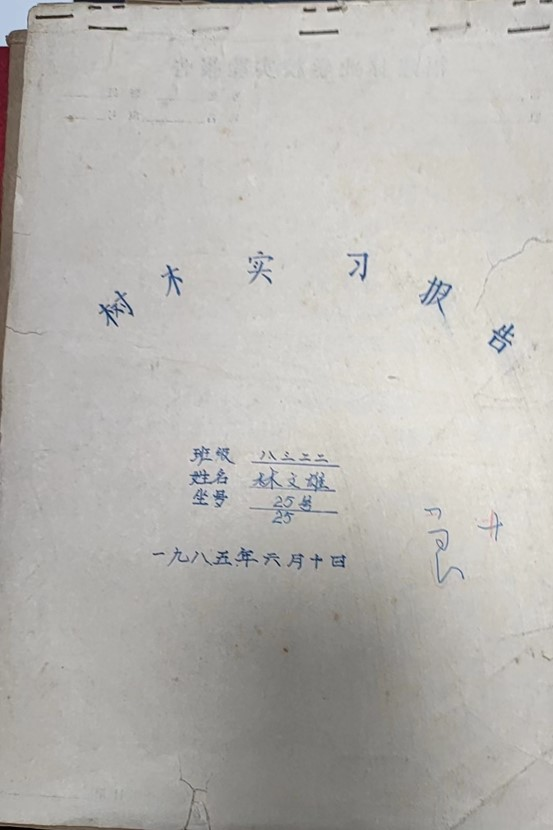 树木实习报告
班级 八三二二
姓名 林文雄
坐号 25号
25
一九八五年六月十日
良+